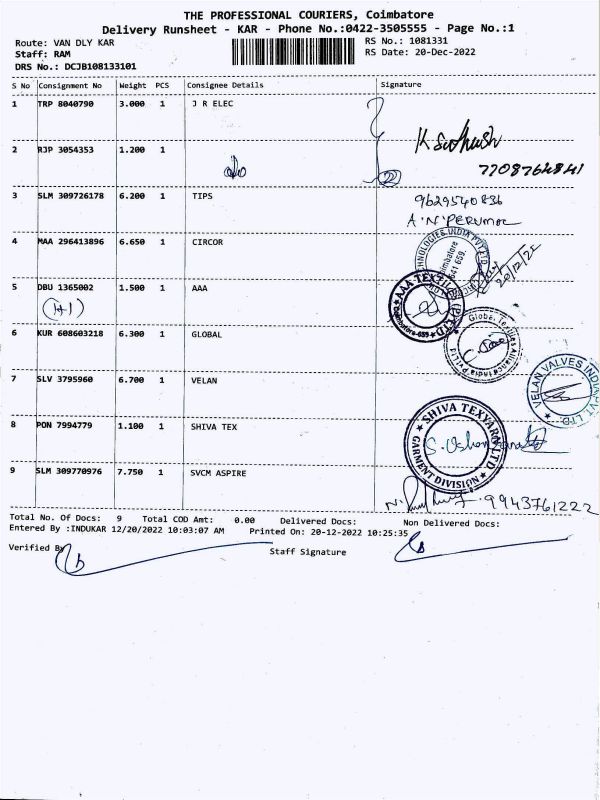 THE PROFESSIONAL COURIERS, Coimbatore
Delivery Runsheet - KAR - Phone No.:0422-3505555 - Page No.:1
Route: VAN DLY KAR
RS No.: 1081331
Staff: RAM
RS Date: 20-Dec-2022
DRS No.: DCJB108133101
S No Consignment No Weight PCS Consignee Details Signature
1 TRP 8040790 3.000 1 J R ELEC
2 RJP 3054353 1.200 1
7708764841
3 SLM 309726178 6.200 1 TIPS
9629540836
A.N.PERUMAL
4 MAA 296413896 6.650 1 CIRCOR
20/12/22
5 DBU 1365002 1.500 1 AAA
(1+1)
AAA TEXTILE (P) LTD
6 KUR 608603218 6.300 1 GLOBAL
7 SLV 3795960 6.700 1 VELAN
VELAN VALVES INDIA PVT. LTD.
8 PON 7994779 1.100 1 SHIVA TEX
SHIVA TEXYARN LTD
GARMENT DIVISION
9 SLM 309770976 7.750 1 SVCM ASPIRE
9943761222
Total No. Of Docs: 9 Total COD Amt: 0.00 Delivered Docs: Non Delivered Docs:
Entered By :INDUKAR 12/20/2022 10:03:07 AM Printed On: 20-12-2022 10:25:35
Verified By
Staff Signature